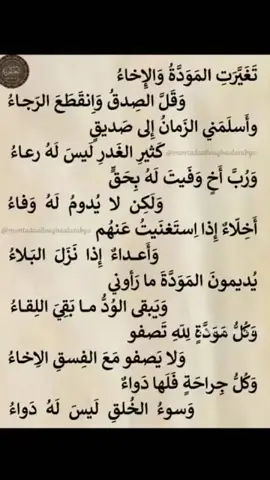 تَغَيَّرَتِ المَوَدَّةُ وَالإِخاءُ
وَقَلَّ الصِدقُ وَاِنقَطَعَ الرَجاءُ
وأَسلَمَني الزَمانُ إِلى صَديقٍ
كَثيرِ الغَدرِ لَيسَ لَهُ رعاءُ
وَرُبَّ أَخٍ وَفَيتَ لَهُ بِحَقٍّ
وَلَكِن لا يُدومُ لَهُ وَفاءُ
أَخِلّاءٌ إِذا اِستَغنَيتُ عَنهُم
وَأَعـداءٌ إِذا نَزَلَ البَـلاءُ
يُديمونَ المَوَدَّةَ ما رَأوني
وَيَبقى الوُدُّ مـا بَقِيَ اللِقـاءُ
وَكُلُّ مَوَدَّةٍ لِلَّهِ تَصفو
وَلا يَصفو مَعَ الفِسقِ الاِخاءُ
وَكُلُّ جِراحَةٍ فَلَها دَواءٌ
وَسوءُ الخُلقِ لَيسَ لَهُ دَواءُ